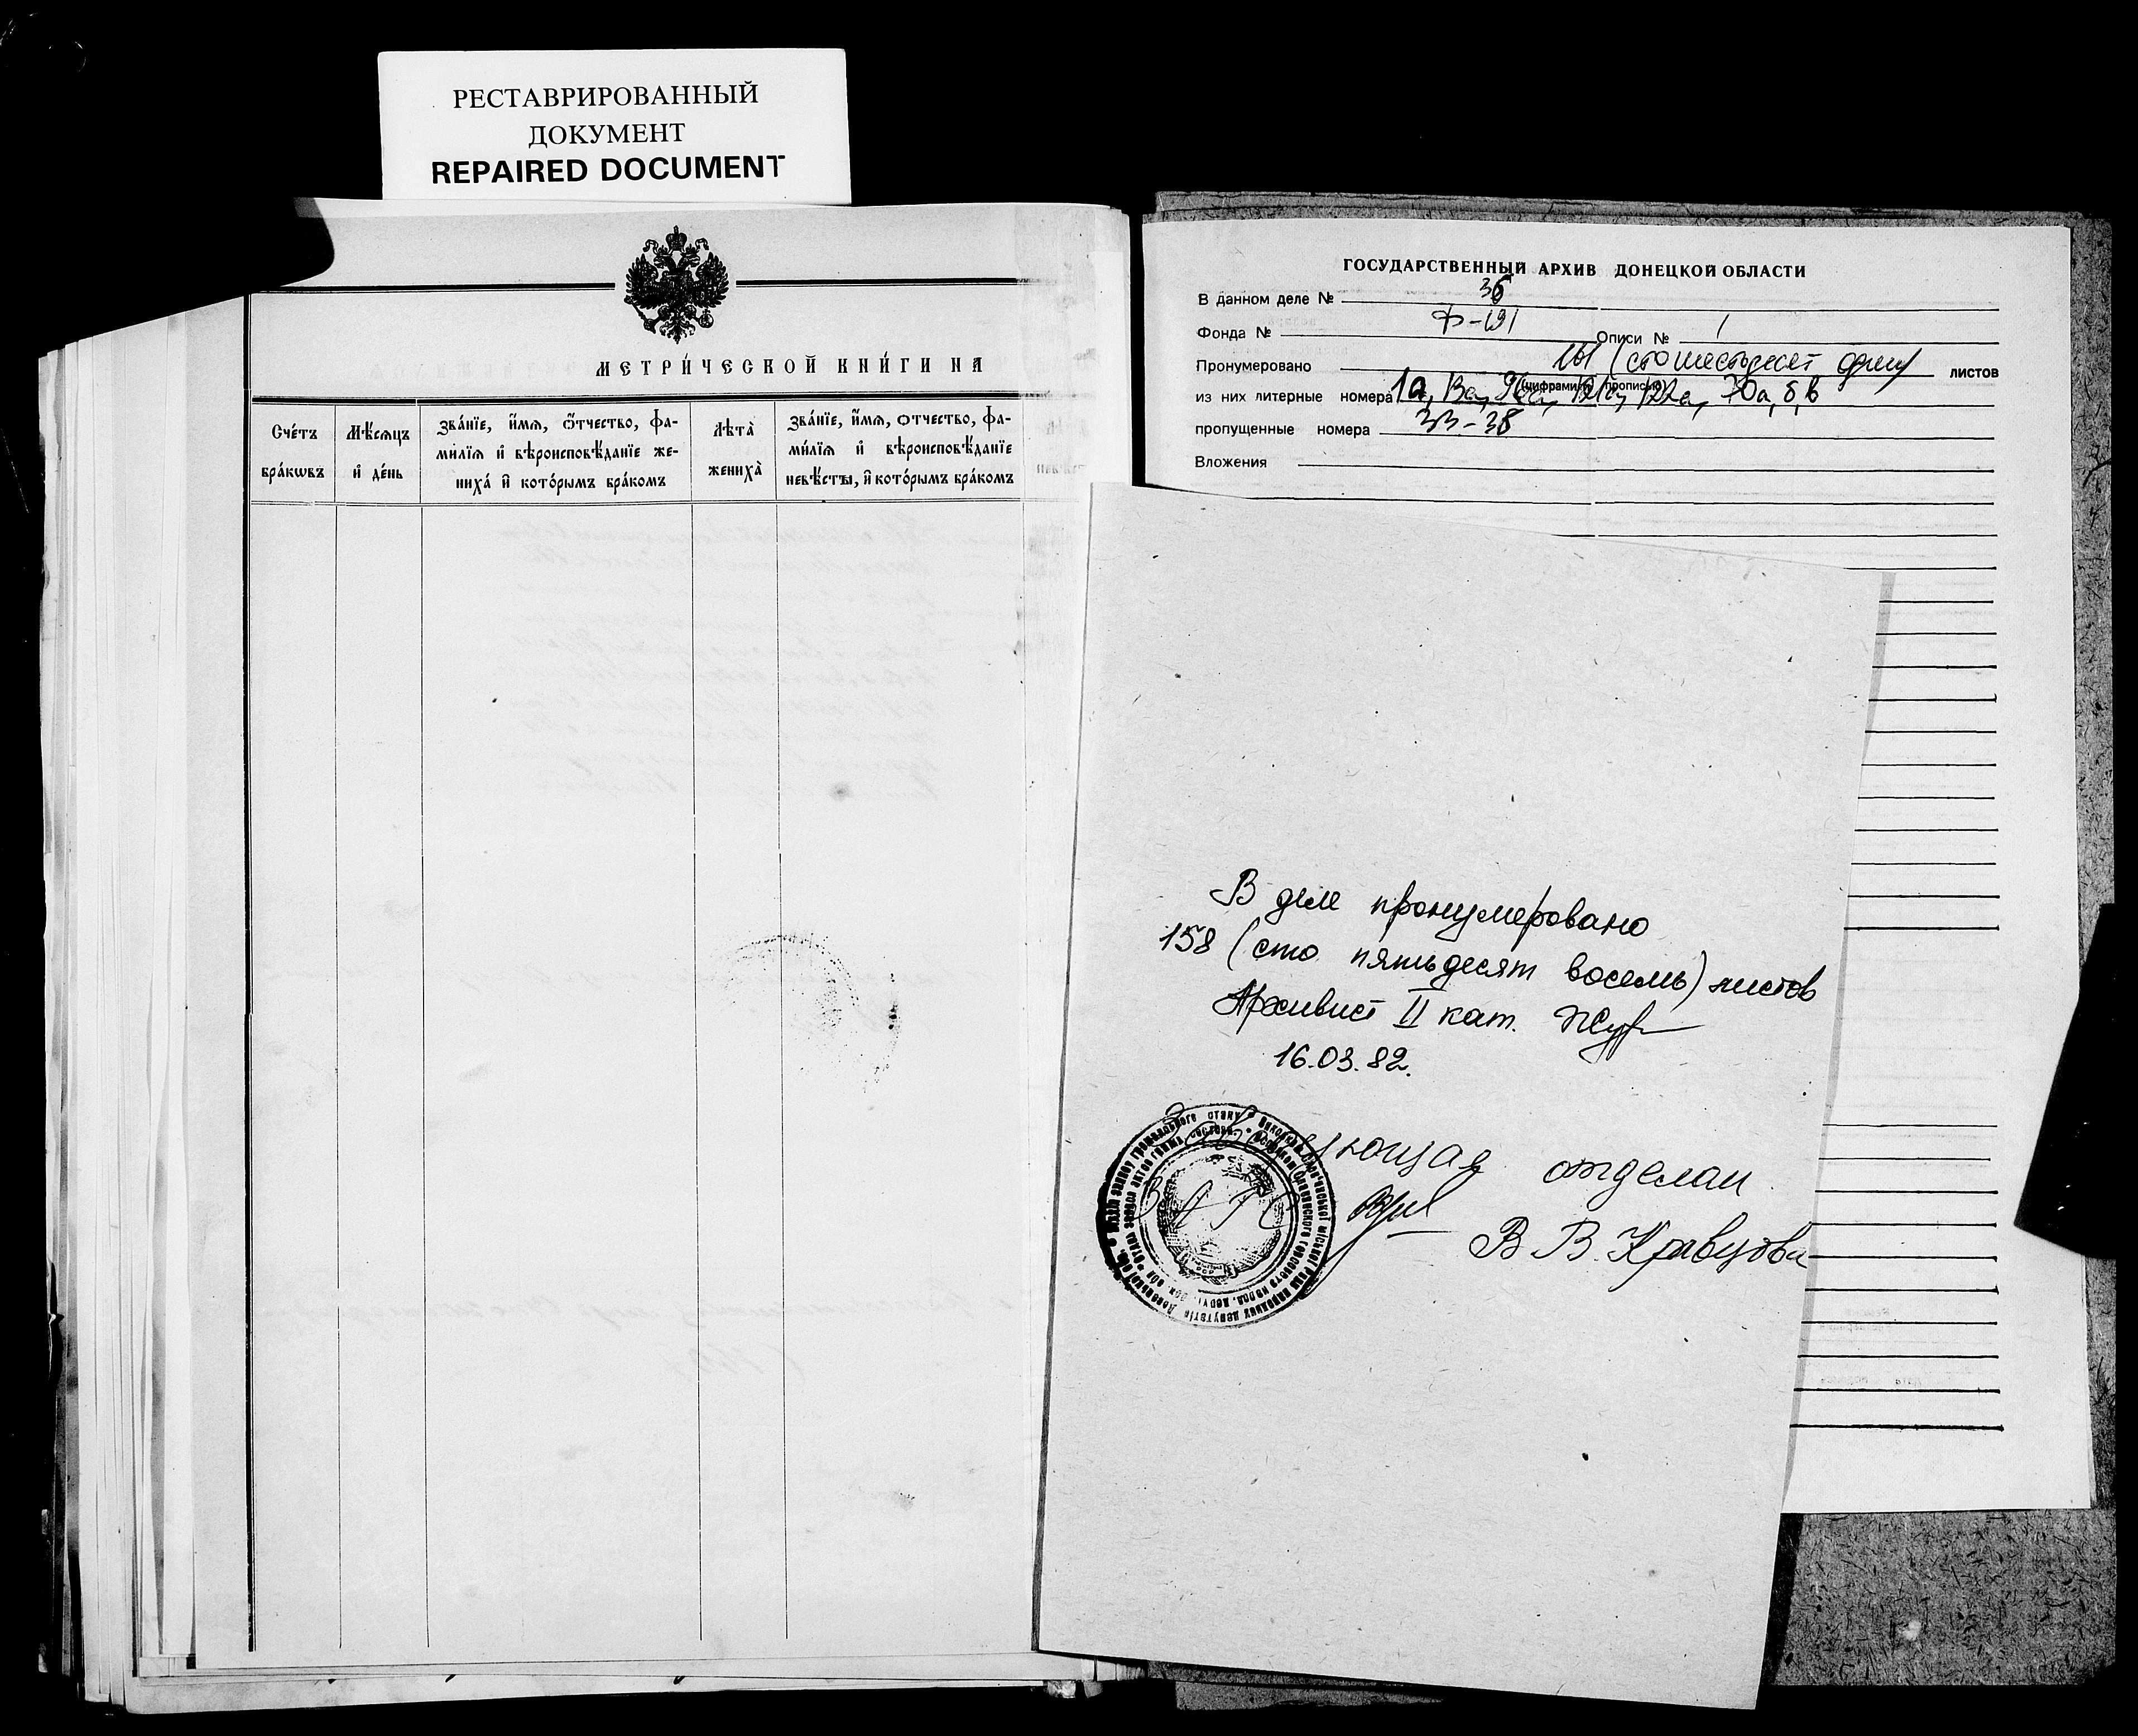 РЕСТАВРИРОВАННЫЙ
ДОКУМЕНТ
REPAIRED DOCUMENT
МЕТРИ́ЧЕСКОЙ КНИ́ГИ НА
Сче́тъ
бра́кѡвъ
Мѣ́сѧцъ
и҆ де́нь
Зва́нїе, и҆́мѧ, ѻ҆́тчество, фа-
ми́лїѧ и҆ вѣроисповѣ́данїе же-
ниха́ и҆ кото́рымъ бра́комъ
Лѣта̀
жениха̀
Зва́нїе, и҆́мѧ, ѻ҆́тчество, фа-
ми́лїѧ и҆ вѣроисповѣ́данїе
невѣ́сты, и҆ кото́рымъ бра́комъ
ГОСУДАРСТВЕННЫЙ АРХИВ ДОНЕЦКОЙ ОБЛАСТИ
В данном деле № 36
Фонда № Ф-191 Описи № 1
Пронумеровано 161 (сто шестьдесят один) листов
(цифрами и прописью)
из них литерные номера 1а, 121а, 122а, 70а, б, в
пропущенные номера 33-38
Вложения
В деле пронумеровано
158 (сто пятьдесят восемь) листов
Архивист II кат.
16.03.82.
Заведующая отделом
ЗАГС
В В. Кравцова